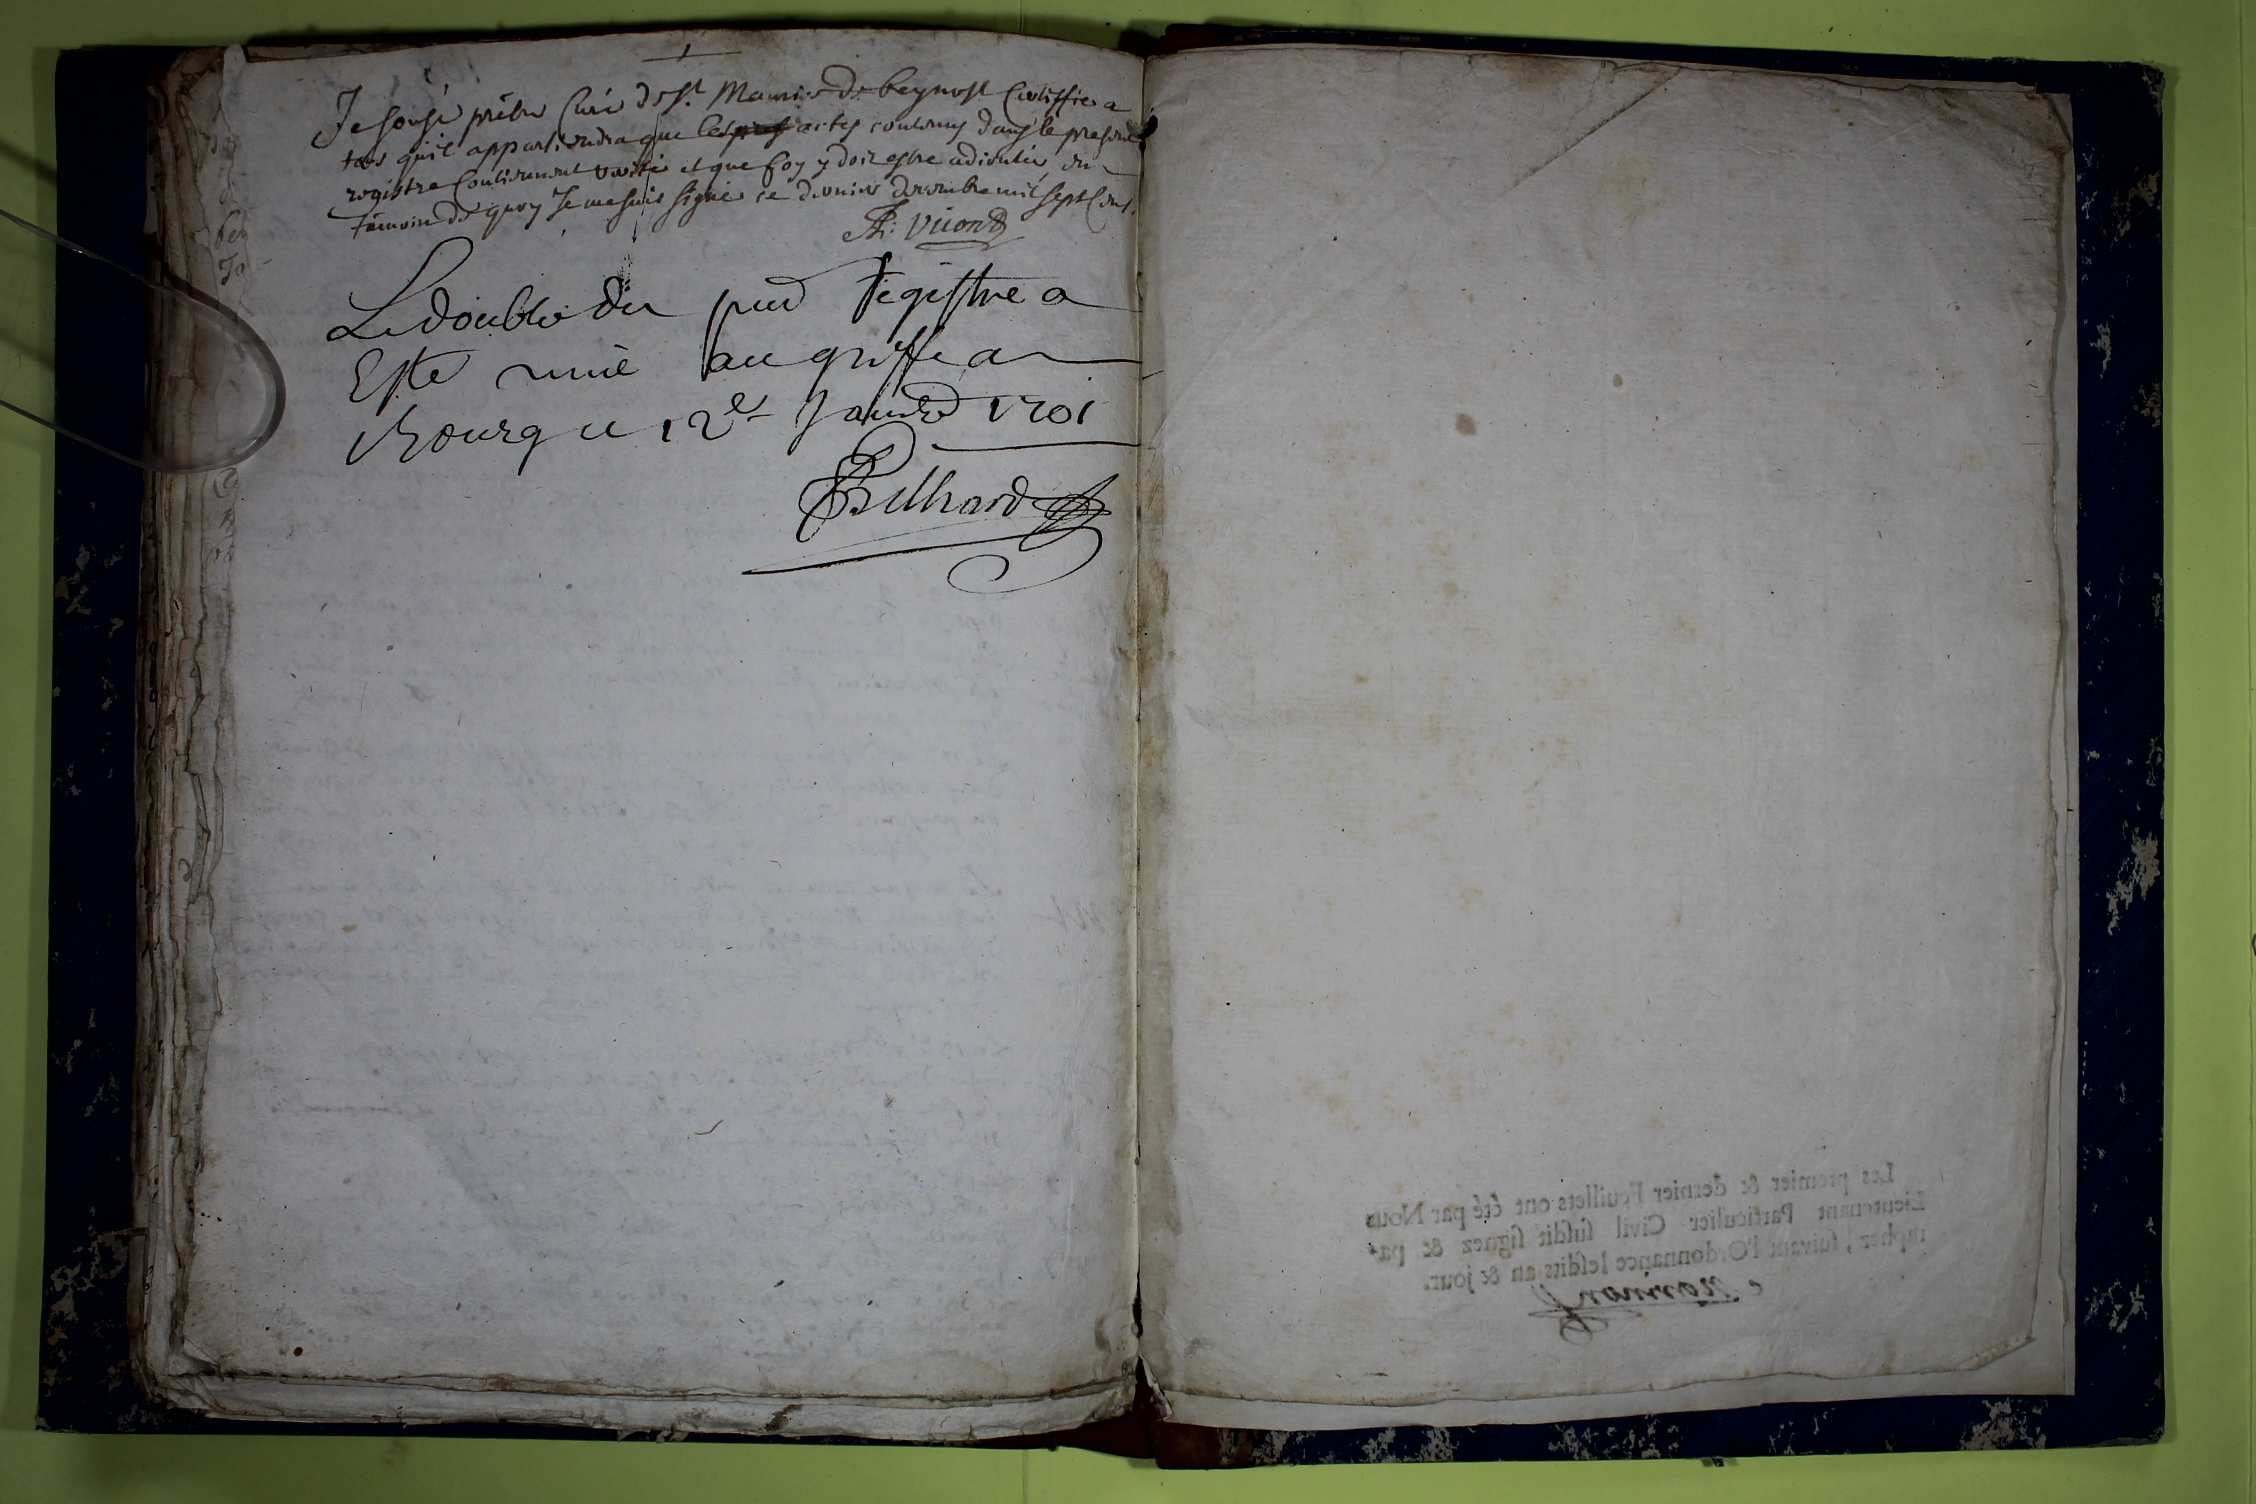 Je sousé prêtre Curé de St. Maurice de beynost Certiffie a
tous quil appartiendra que les actes contenus dans le present
registre Contiennent verité et que foy y doit estre adioutée en
témoin de quoy Je me suis signé ce dernier decembre mil sept Cent.
Le double du pnt Registre a
Esté mis au greffe a
Bourg ce 12e Janvr 1701
Les premier & dernier Feuillets ont été par Nous
Lieutenant Particulier Civil ſuſdit ſignez & pa-
raphez, ſuivant l'Ordonnance leſdits an & jour.